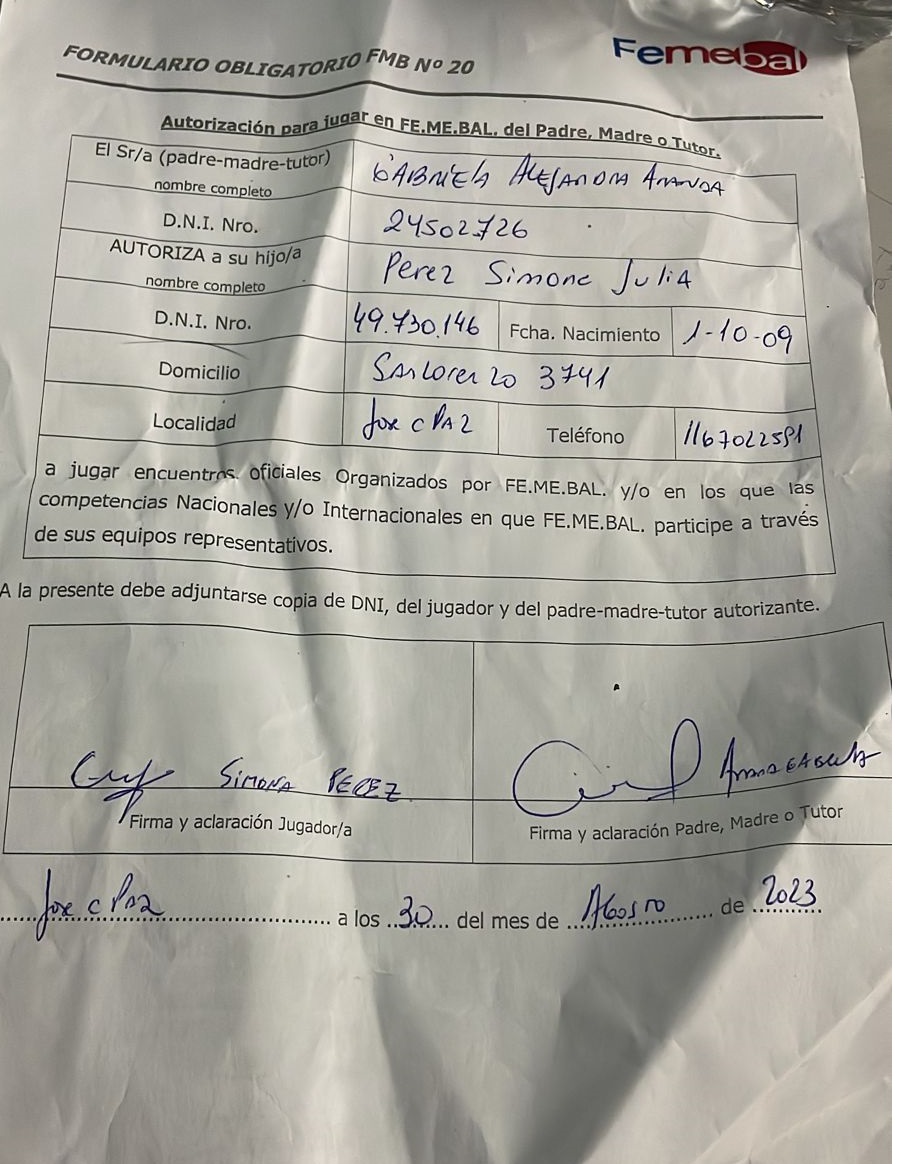 FORMULARIO OBLIGATORIO FMB Nº 20
Femebal
Autorización para jugar en FE.ME.BAL. del Padre, Madre o Tutor.
El Sr/a (padre-madre-tutor)
nombre completo
GABRIELA ALEJANDRA ARANDA
D.N.I. Nro.
24502726
AUTORIZA a su hijo/a
nombre completo
Perez Simone JuliA
D.N.I. Nro.
49.730.146
Fcha. Nacimiento
1-10-09
Domicilio
SAn Lorenzo 3741
Localidad
Jose C PAZ
Teléfono
1167022591
a jugar encuentros oficiales Organizados por FE.ME.BAL. y/o en los que las
competencias Nacionales y/o Internacionales en que FE.ME.BAL. participe a través
de sus equipos representativos.
A la presente debe adjuntarse copia de DNI, del jugador y del padre-madre-tutor autorizante.
SIMONA PEREZ
Firma y aclaración Jugador/a
Firma y aclaración Padre, Madre o Tutor
Jose C Paz a los 30 del mes de Agosto de 2023